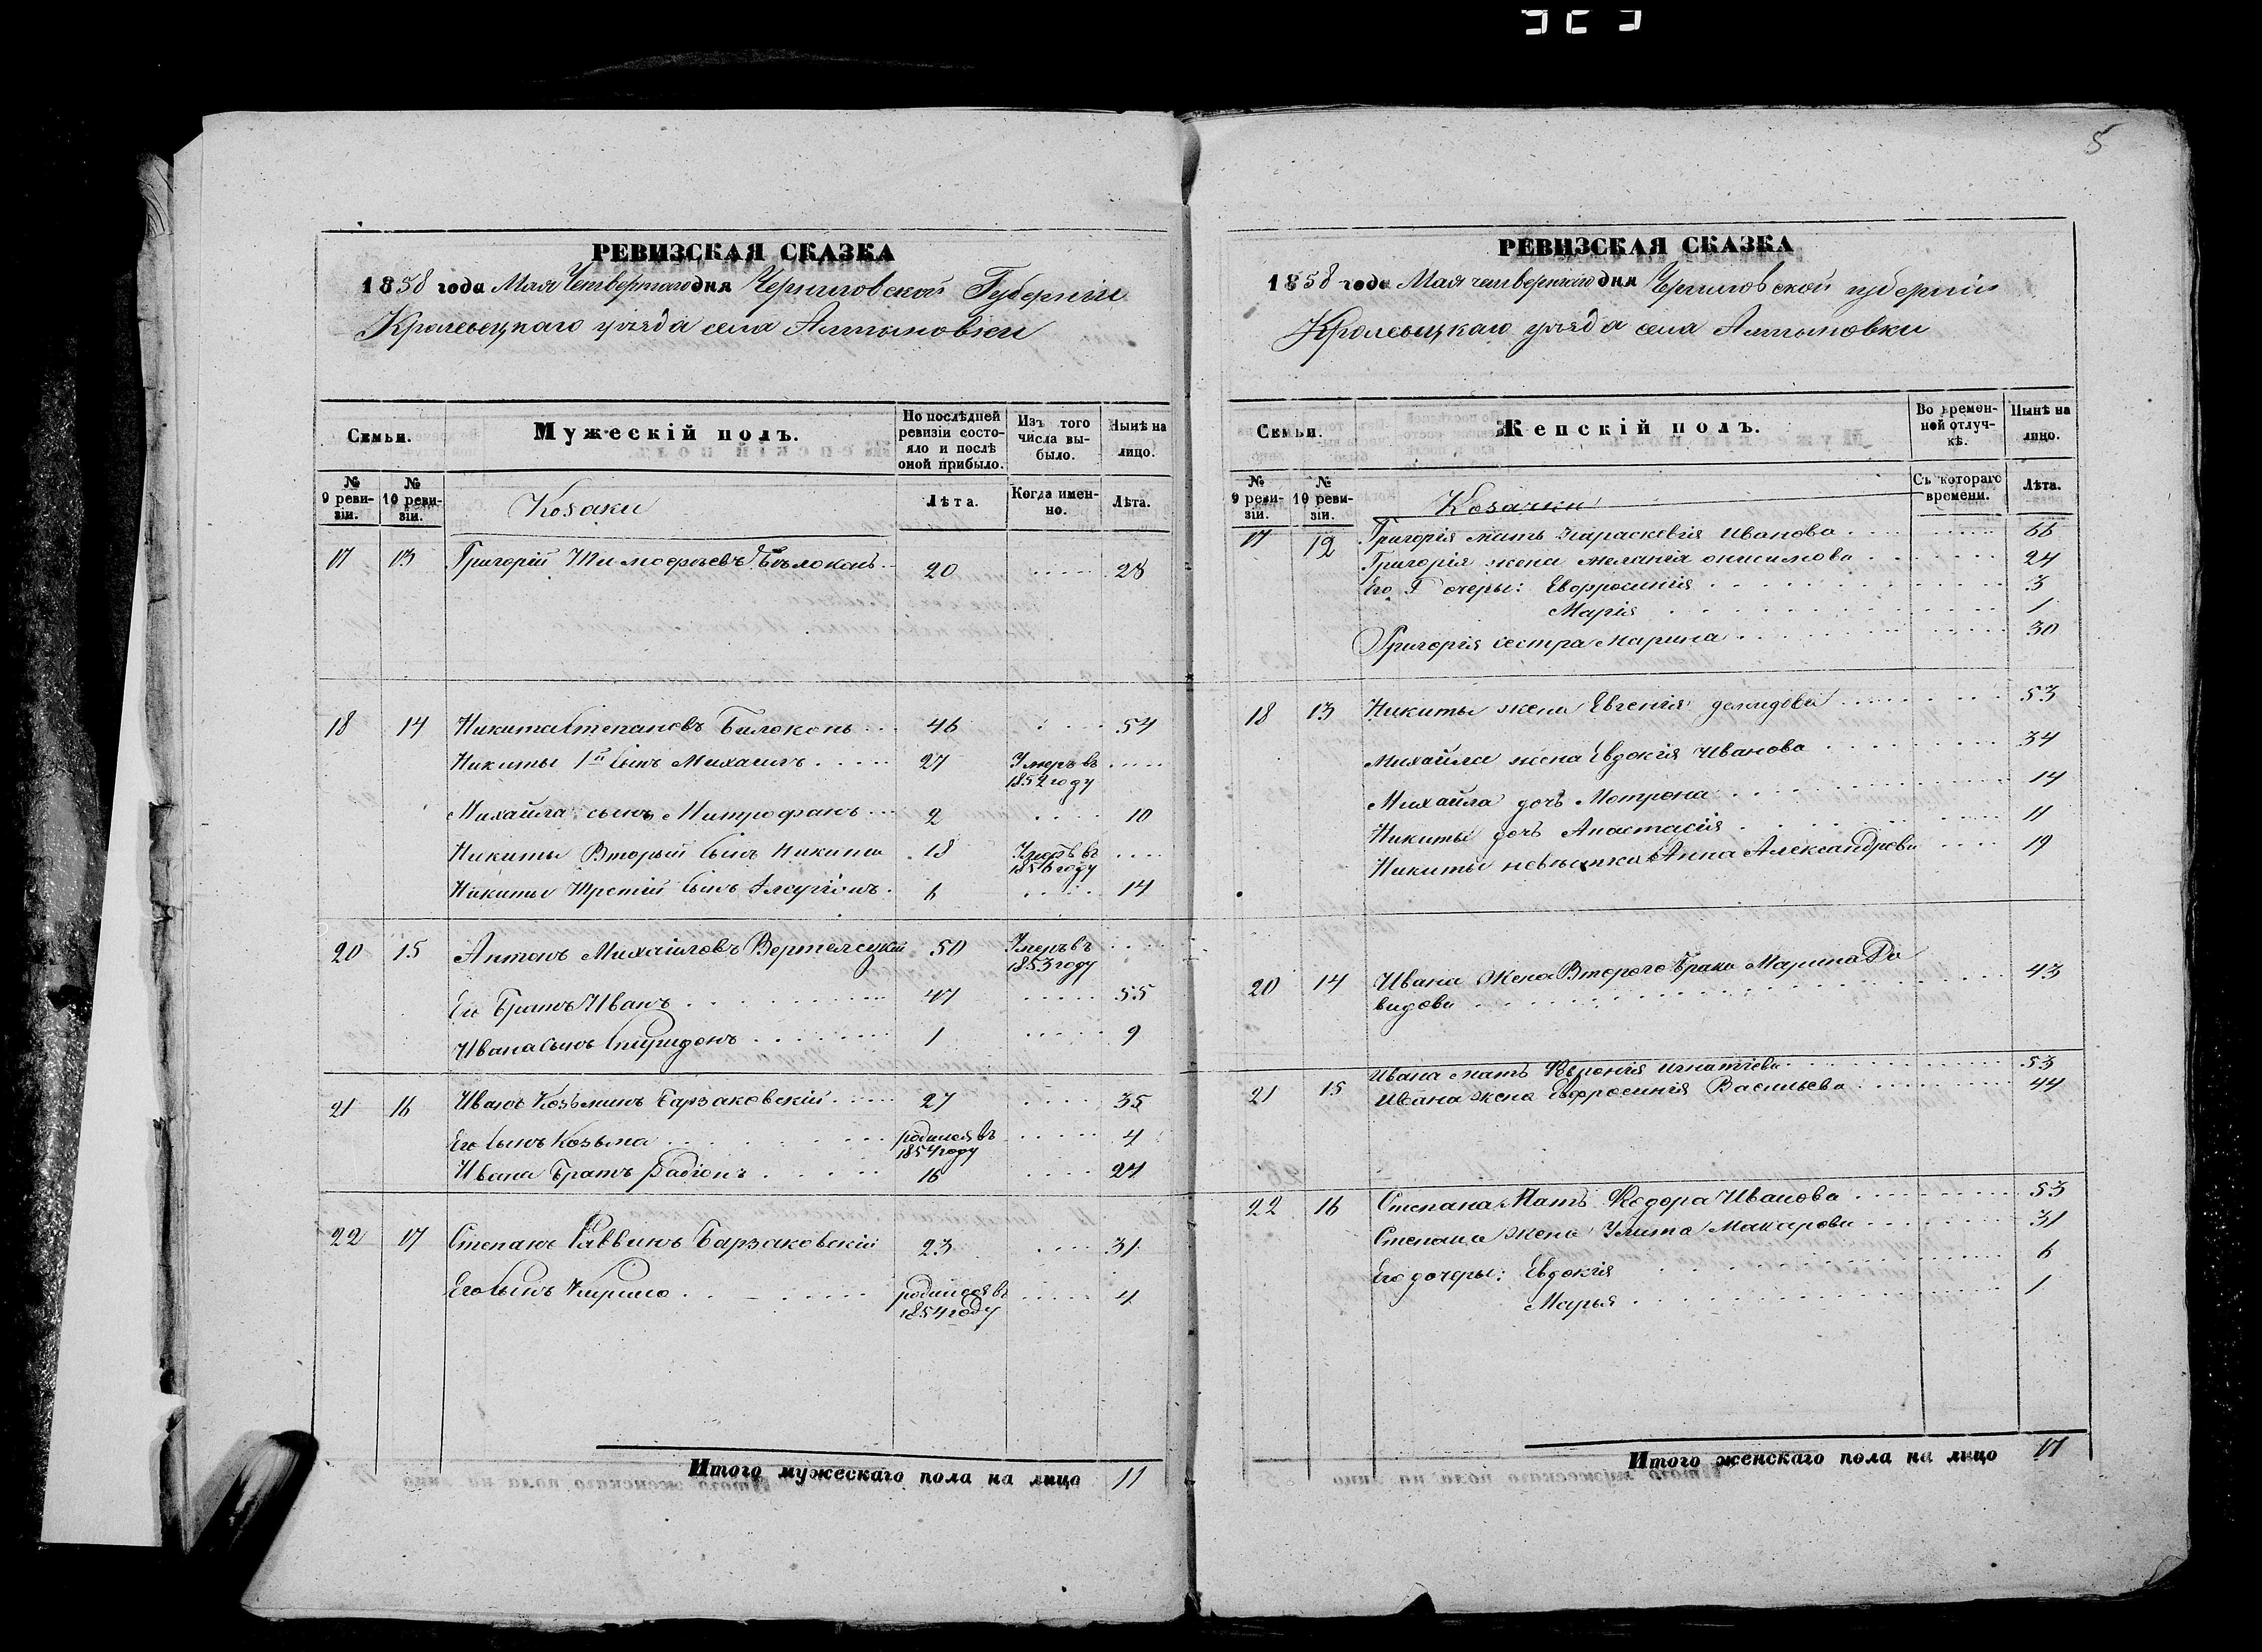 5
РЕВИЗСКАЯ СКАЗКА
1858 года Мая Четвертаго дня Черниговской Губернии
Кролевецкаго уезда села Алтыновки
Семьи.
Мужескій полъ.
По послѣдней ревизіи состояло и послѣ оной прибыло.
Изъ того числа выбыло.
Нынѣ на лицо.
№ 9 ревизіи.
№ 10 ревизіи.
Козаки
Лѣта.
Когда именно.
Лѣта.
17 13 Григорій Тимофѣевъ Бѣлоконь 20 28
18 14 Никита Степановъ Билоконь 46 54
Никиты 1й Сынъ Михаилъ 27 Умеръ въ 1852 году
Михайла сынъ Митрофанъ 2 10
Никиты Вторый Сынъ Никита 18 Умеръ въ 1856 году
Никиты Третій Сынъ 6 14
20 15 Антонъ Михаиловъ Вертелецкій 50 Умеръ въ 1853 году
Его Братъ Иванъ 47 55
Ивана Сынъ Спиридонъ 1 9
21 16 Иванъ Козьминъ Барзаковскій 27 35
Его Сынъ Козьма родился въ 1854 году 4
Ивана Братъ Радіонъ 16 24
22 17 Степанъ Саввинъ Барзаковскій 23 31
Его Сынъ Кирило родился въ 1854 году 4
Итого мужескаго пола на лицо 11
РЕВИЗСКАЯ СКАЗКА
1858 года Мая четвертаго дня Черниговской губернии
Кролевецкаго уезда села Алтыновки
Семьи.
Женскій полъ.
Во временной отлучкѣ.
Нынѣ на лицо.
№ 9 ревизіи.
№ 10 ревизіи.
Козачки
Съ котораго времени.
Лѣта.
17 12 Григорія мать Параскевія Иванова 66
Григорія жена Меланія Онисимова 24
Его Дочеры: Евфросинія 3
Марія 1
Григорія сестра Марина 30
18 13 Никиты жена Евгенія Демидова 53
Михайла жена Евдокія Иванова 34
Михайла дочь Мотрона 14
Никиты дочь Анастасія 11
Никиты невѣстка Анна Александрова 19
20 14 Ивана жена Второго Брака Марина Да
видова 43
Ивана мать Феронія Игнатіева 53
21 15 Ивана жена Евфросинія Васильева 44
22 16 Степана Мать Федора Иванова 53
Степана жена Улита Макарова 31
Его дочеры: Евдокія 6
Марья 1
Итого женскаго пола на лицо 17